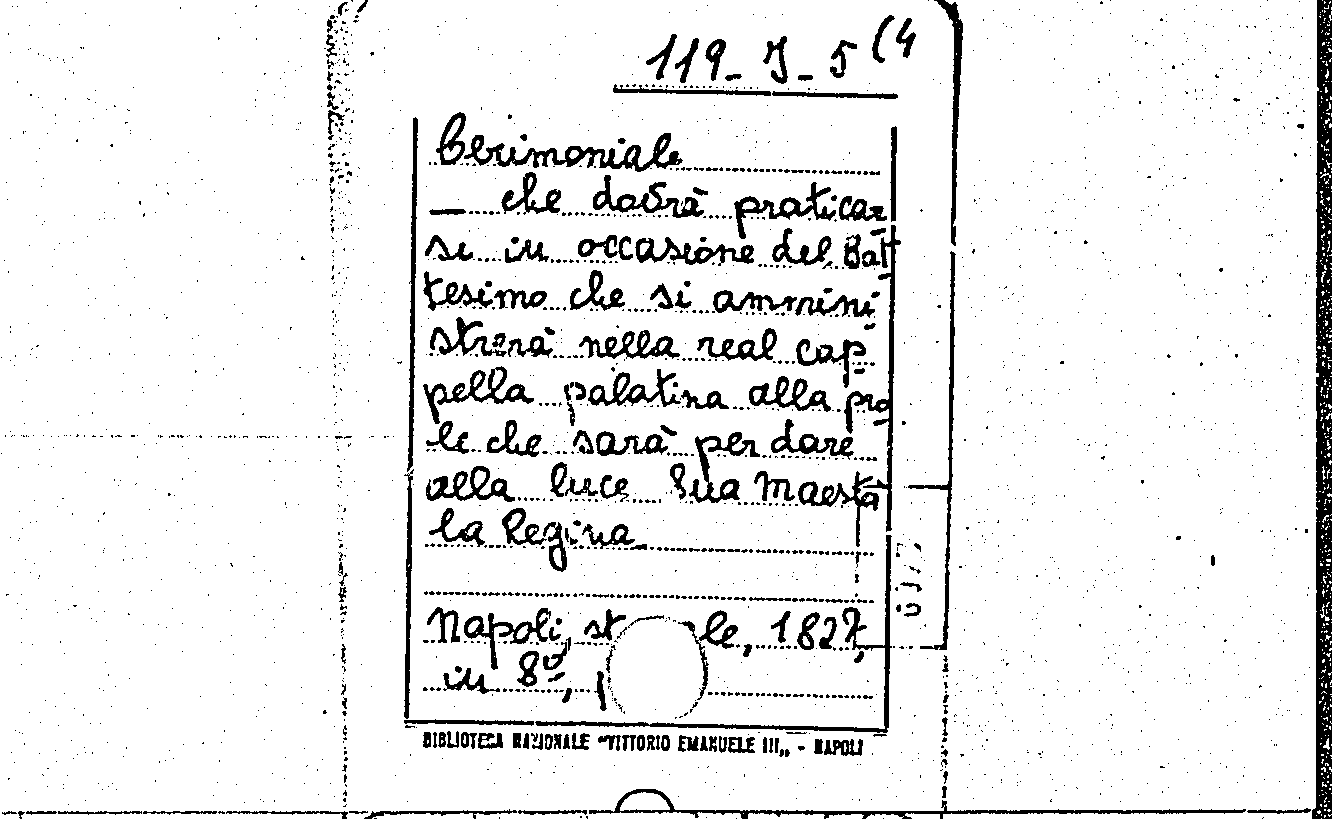 119-J-5(4
Cerimoniale
_ che dovrà praticar
si in occasione del Bat
tesimo che si ammini
strerà nella real cap
pella palatina alla pro
le che sarà per dare
alla luce Sua Maestà
la Regina
Napoli, st ale, 1827,
in 8º,
BIBLIOTECA NAZIONALE "VITTORIO EMANUELE III„ - NAPOLI